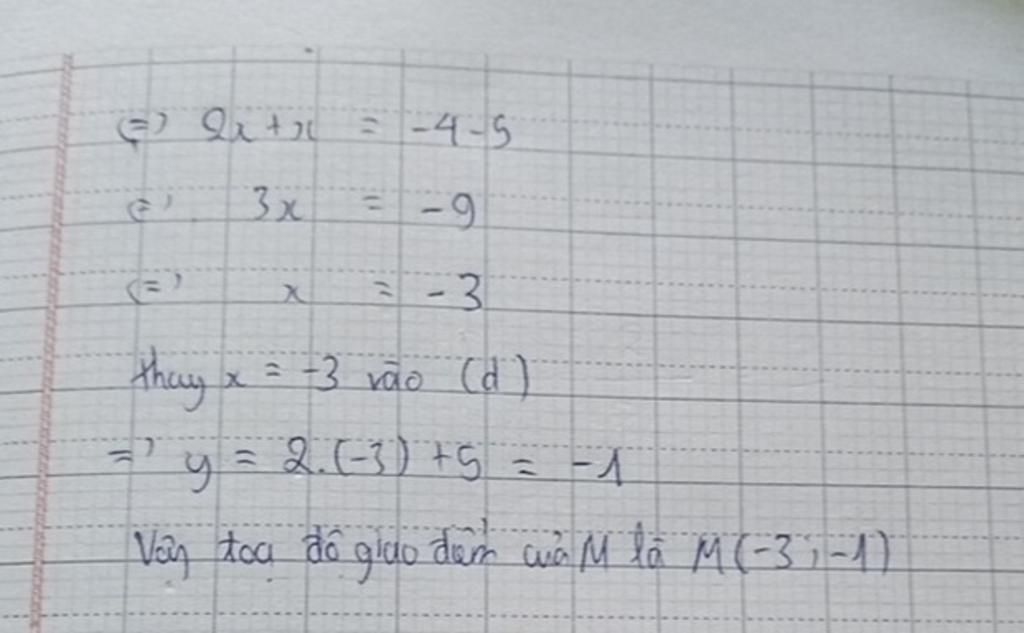 <=> 2x + x = -4 - 5
<=> 3x = -9
<=> x = -3
thay x = -3 vào (d)
=> y = 2.(-3) + 5 = -1
Vậy toạ độ giao điểm của M là M(-3; -1)